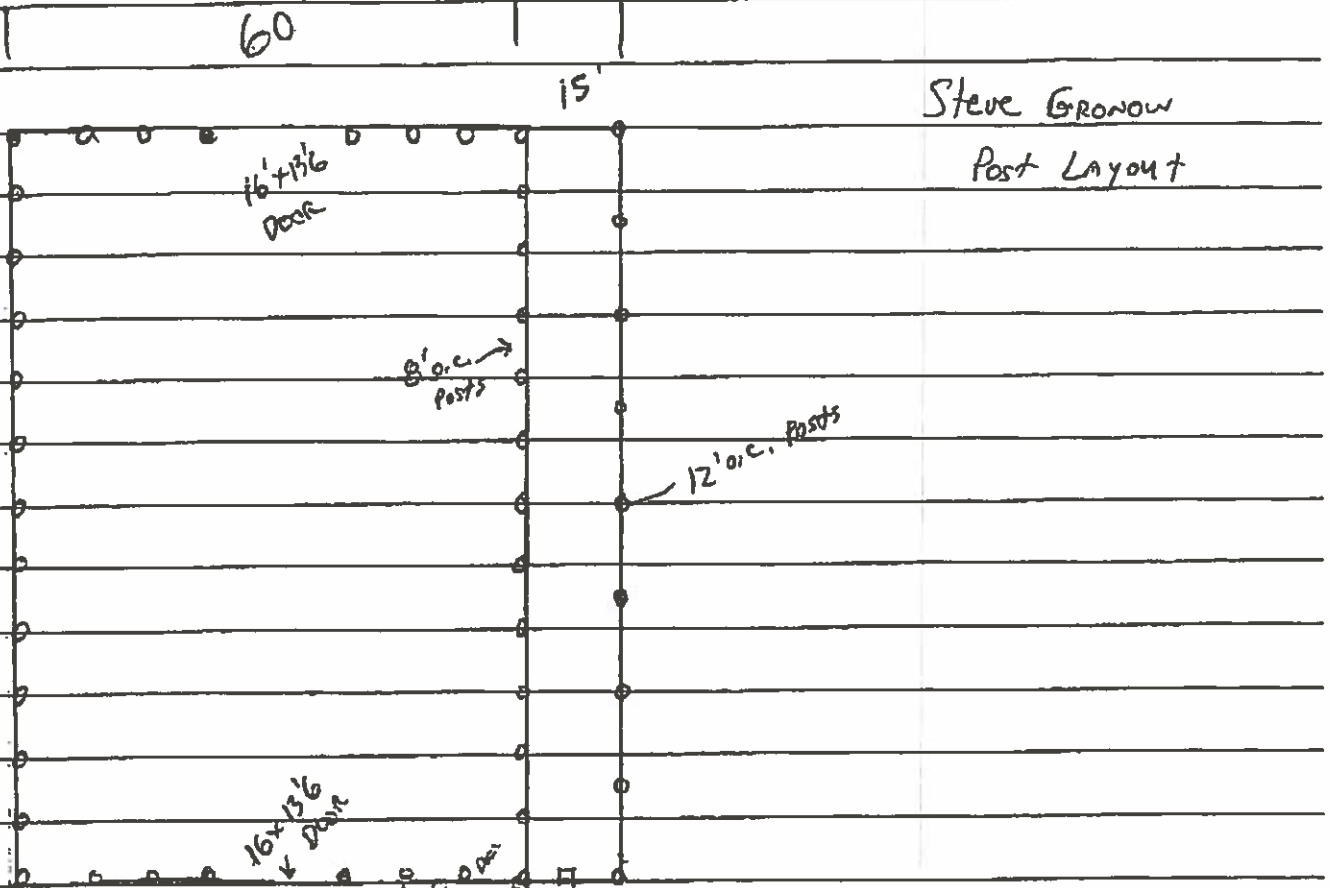 60
15'
Steve GRONOW
Post LAYOUT
16'x13'6
DOOR
8'o.c.
Posts
12'o.c. Posts
16x13'6
DOOR